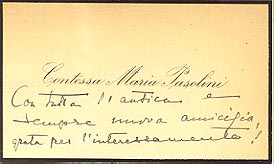 Contessa Maria Pasolini
Con tutta l'antica e
sempre nuova amicizia,
grata per l'interessamento!